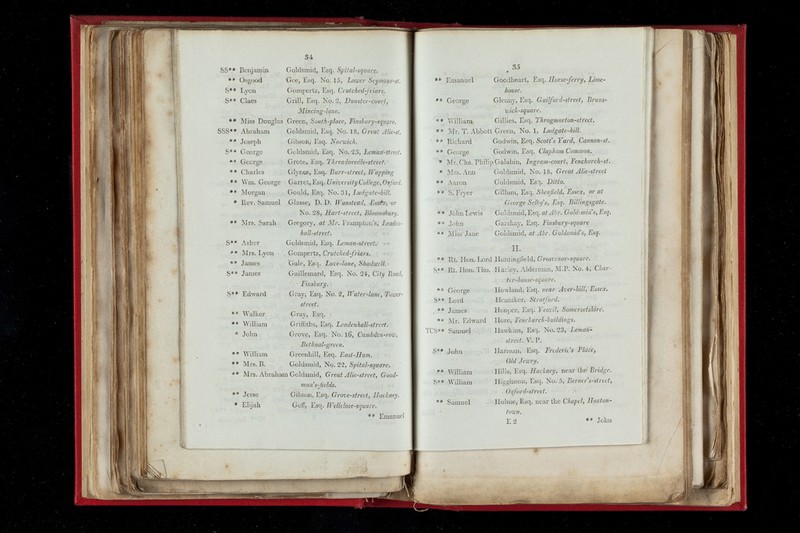 34
SS** Benjamin Goldsmid, Esq. Spital-square.
** Osgood Gee, Esq. No. 15, Lower Seymour-st.
S** Lyon Gompertz, Esq. Crutched-friars.
S** Claes Grill, Esq. No. 2, Dunster-court,
Mincing-lane.
** Miss Douglas Green, South-place, Finsbury-square.
SSS** Abraham Goldsmid, Esq. No. 18, Great Alie-st.
** Joseph Gibson, Esq. Norwich.
S** George Goldsmid, Esq. No. 25, Leman-street.
** George Grote, Esq. Threadneedle-street.
** Charles Glynn, Esq. Burr-street, Wapping
** Wm. George Garret, Esq. University College, Oxford.
** Morgan Gould, Esq. No. 31, Ludgate-hill.
* Rev. Samuel Glasse, D. D. Wanstead, Essex, or
No. 28, Hart-street, Bloomsbury.
** Mrs. Sarah Gregory, at Mr. Frampton's, Leaden-
hall-street.
S** Asher Goldsmid, Esq. Leman-street.
** Mrs. Lyon Gompertz, Crutched-friars.
** James Gale, Esq. Love-lane, Shadwell.
S** James Guillemard, Esq. No. 24, City Road,
Finsbury.
S** Edward Gray, Esq. No. 2, Water-lane, Tower-
street.
** Walker Gray, Esq.
** William Griffiths, Esq. Leadenhall-street.
* John Grove, Esq. No. 16, Cambden-row,
Bethnal-green.
** William Greenhill, Esq. East-Ham.
** Mrs. B. Goldsmid, No. 22, Spital-square.
** Mrs. Abraham Goldsmid, Great Alie-street, Good-
man's-fields.
** Jesse Gibson, Esq. Grove-street, Hackney.
* Elijah Goff, Esq. Wellclose-square.
** Emanuel
35
** Emanuel Goodheart, Esq. Horse-ferry, Lime-
house.
** George Glenny, Esq. Guilford-street, Bruns-
wick-square.
** William Gillies, Esq. Throgmorton-street.
** Mr. T. Abbott Green, No. 1, Ludgate-hill.
** Richard Godwin, Esq. Scott's Yard, Cannon-st.
** George Godwin, Esq. Clapham Common.
* Mr. Cha. Phillip Galabin, Ingram-court, Fenchurch-st.
* Mrs. Ann Goldsmid, No. 18, Great Alie-street
** Aaron Goldsmid, Esq. Ditto.
** S. Fryer Gillum, Esq. Shenfield, Essex, or at
George Selby's, Esq. Billingsgate.
** John Lewis Goldsmid, Esq. at Abr. Goldsmid's, Esq.
** John Garshay, Esq. Finsbury-square
** Miss Jane Goldsmid, at Abr. Goldsmid's, Esq.
H.
** Rt. Hon. Lord Huntingfield, Grosvenor-square.
S** Rt. Hon. Tho. Harley, Alderman, M.P. No. 4, Char-
ter-house-square.
** George Howland, Esq. near Aver-hill, Essex.
S** Lord Henniker, Stratford.
** James Hooper, Esq. Yeovil, Somersetshire.
** Mr. Edward Hore, Fenchurch-buildings.
TCS** Samuel Hawkins, Esq. No. 23, Leman-
street. V. P.
S** John Harman, Esq. Frederic's Place,
Old Jewry.
** William Hills, Esq. Hackney, near the Bridge.
S** William Higginson, Esq. No. 5, Berner's-street,
Oxford-street.
** Samuel Hulme, Esq. near the Chapel, Hoxton-
town.
E 2 ** John